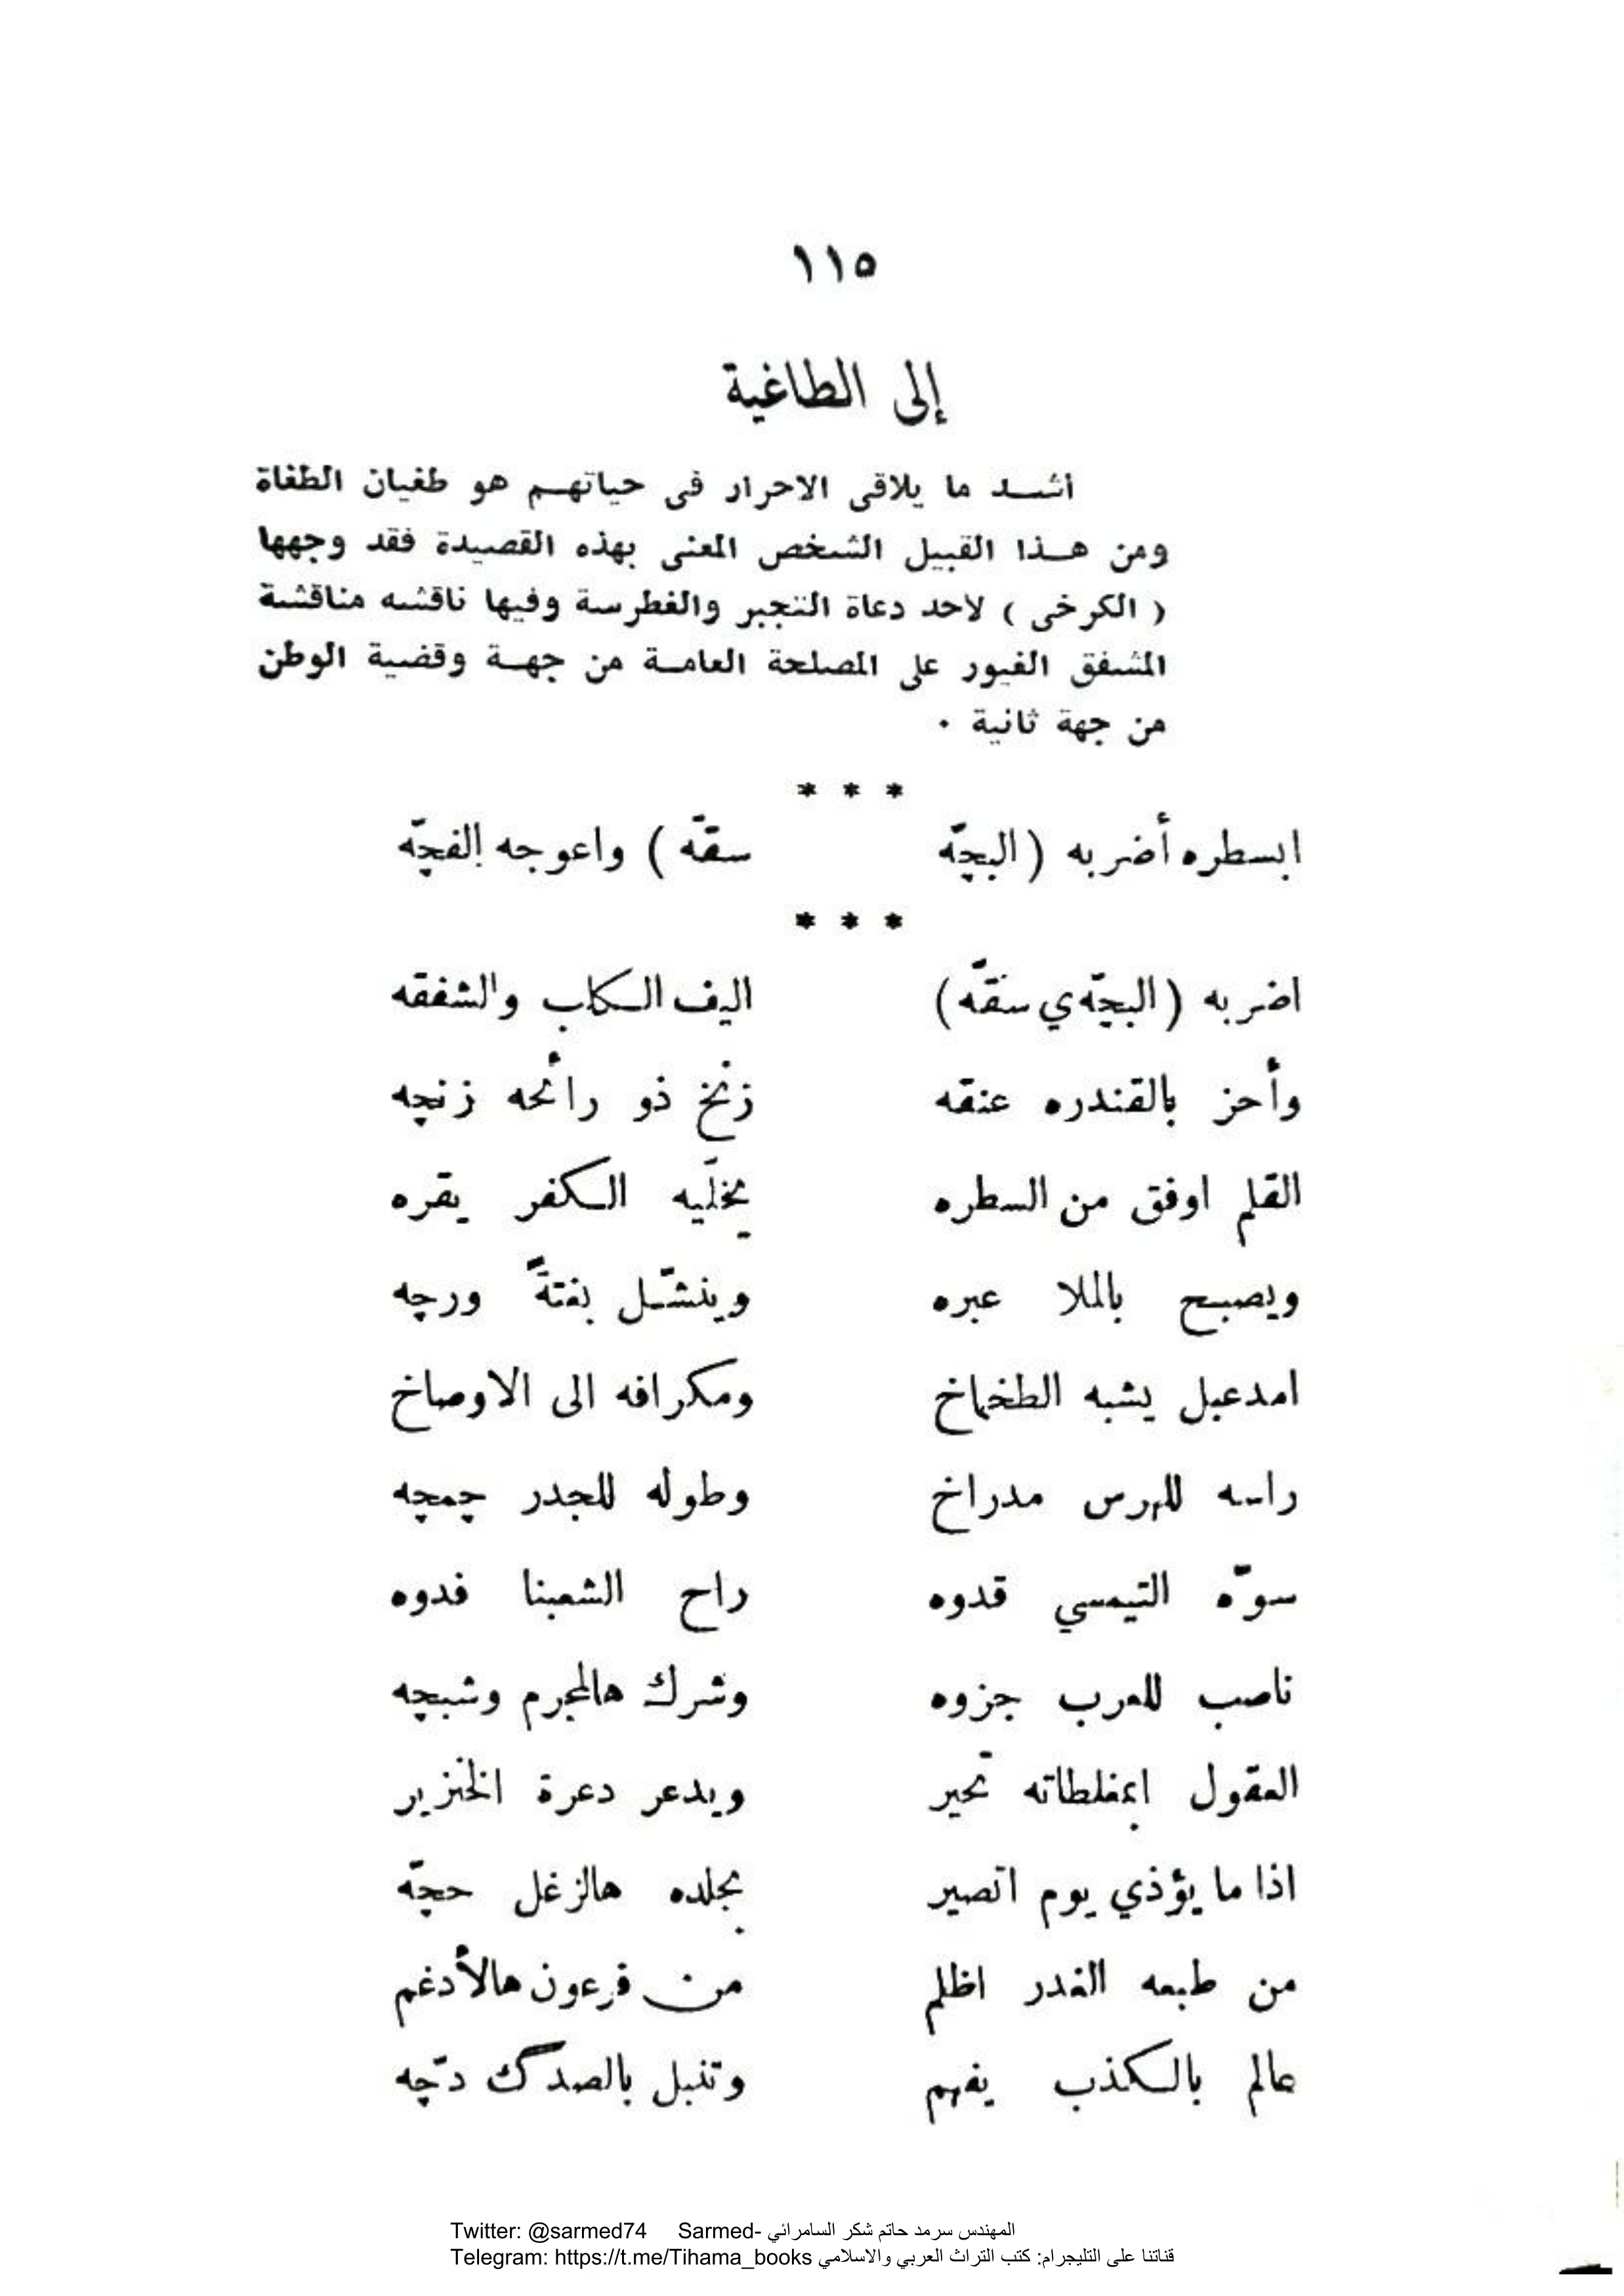 ١١٥
إلى الطاغية
اشد ما يلاقى الاحرار فى حياتهم هو طغيان الطغاة
ومن هذا القبيل الشخص المعنى بهذه القصيدة فقد وجهها
( الكرخى ) لاحد دعاة التجبر والغطرسة وفيها ناقشه مناقشة
المشفق الغيور على المصلحة العامة من جهة وقضية الوطن
من جهة ثانية ٠
* * *
ابسطره أضربه ( البچّه سقّه ) واعوجه الفچّه
* * *
اضربه ( البچّه ي سقّه ) اليف الكلب والشفقه
وأحز بالقندره عنقه زنخ ذو رائحه زنچه
القلم اوفق من السطره يخلّيه الكفر يقره
ويصبح بالملا عبره وينشّل بغتةً ورچه
امدعبل يشبه الطخماخ ومكرافه الى الاوصاخ
راسه للهرس مدراخ وطوله للجدر چمچه
سوّه التيمسي قدوه راح الشعبنا فدوه
ناصب للعرب جزوه وشرك هالمجرم وشبچه
العقول ابمغلطاته تحير ويدعر دعرة الخنزير
اذا ما يؤذي يوم اتصير بجلده هالزغل حچّه
من طبعه الغدر اظلم من فرعون هالأدغم
عالم بالكذب يفهم وتنبل بالصدگ دچّه
Twitter: @sarmed74 Sarmed- المهندس سرمد حاتم شكر السامرائي
Telegram: https://t.me/Tihama_books قناتنا على التليجرام: كتب التراث العربي والاسلامي